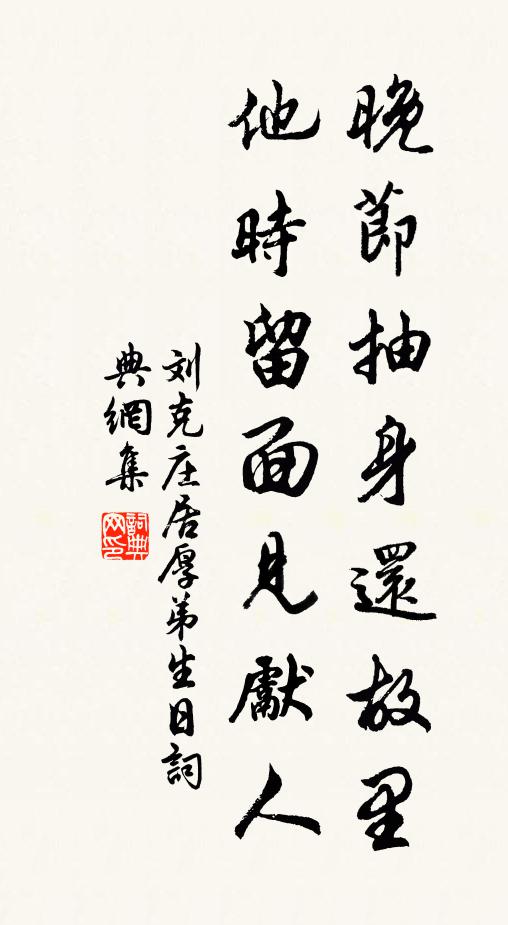 晚節抽身還故里
他時留面見獻人
刘克庄居厚弟生日詞
典網集
詞典
网印